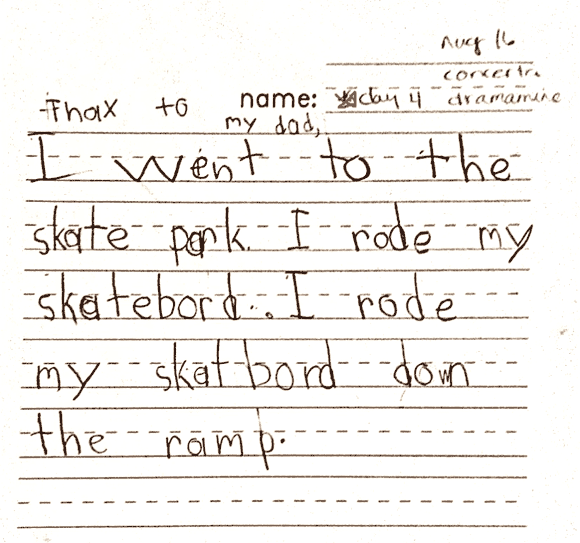 Aug 16
Thax to name: day 4 dramamine
my dad,
I went to the
skate park. I rode my
skatebord. I rode
my skatbord down
the ramp.